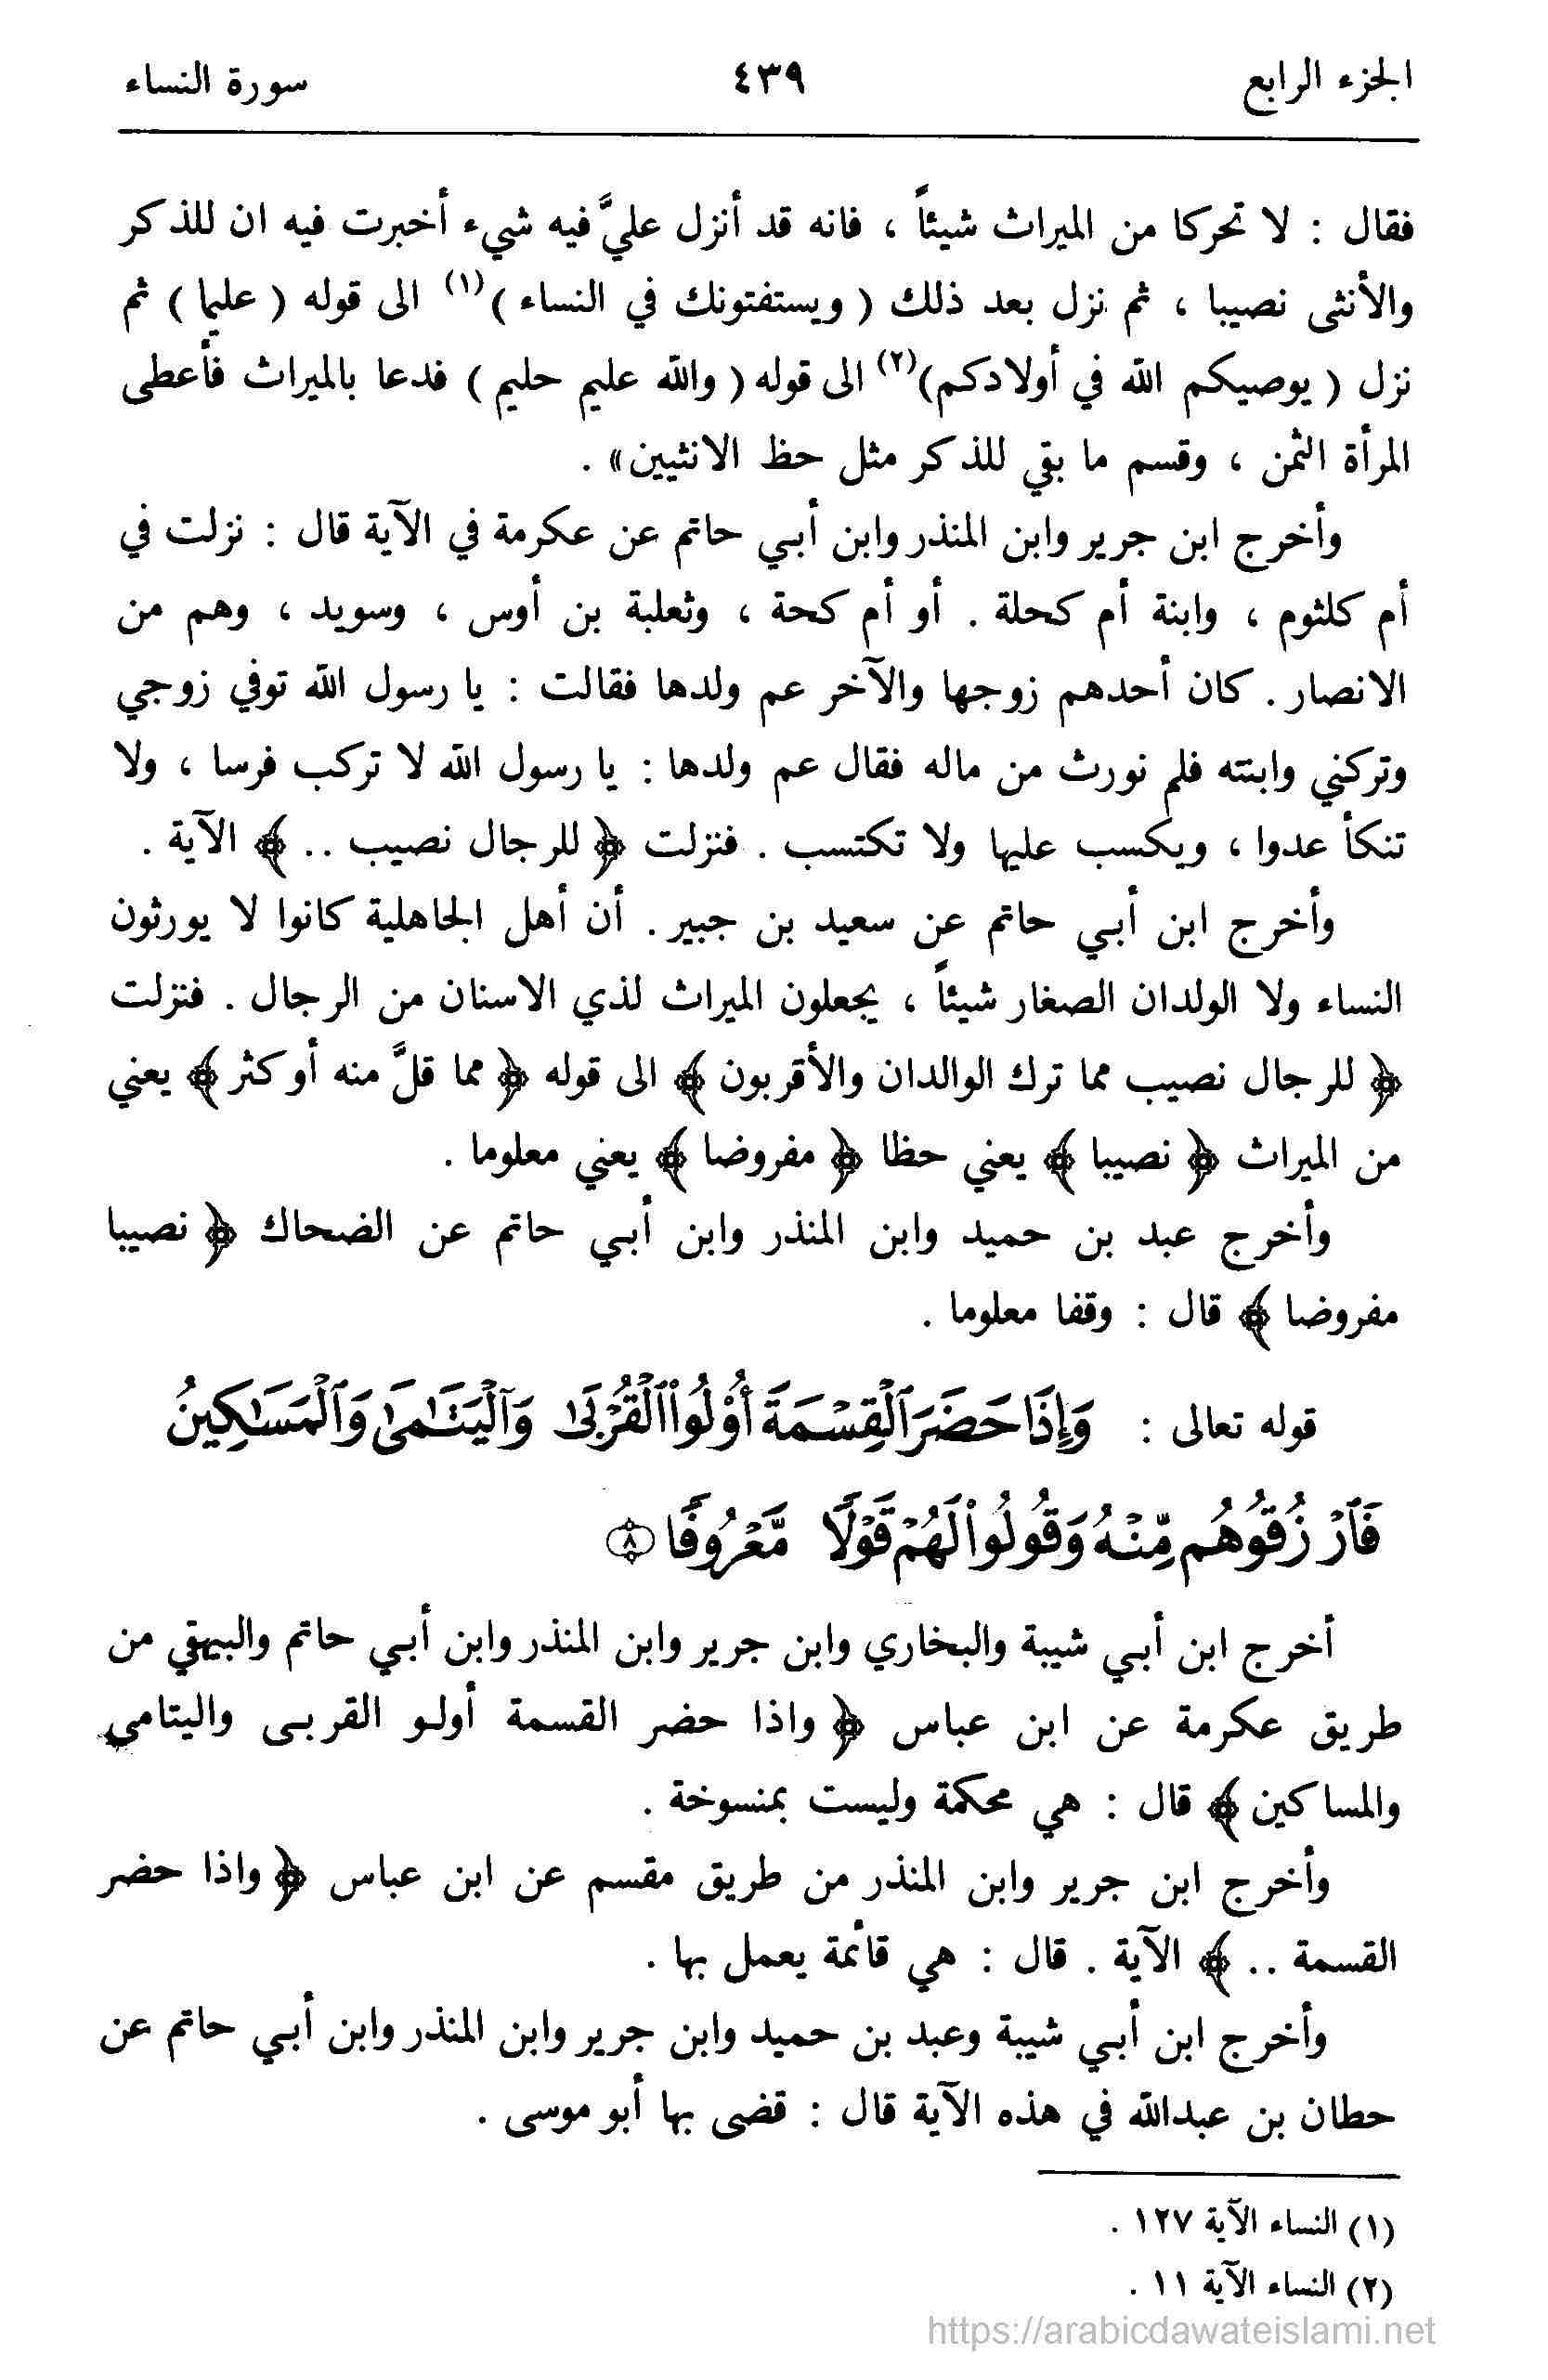 الجزء الرابع ٤٣٩ سورة النساء
فقال : لا تحركا من الميراث شيئاً ، فانه قد أنزل عليَّ فيه شيء أخبرت فيه ان للذكر
والأنثى نصيبا ، ثم نزل بعد ذلك ( ويستفتونك في النساء )(١) الى قوله ( عليما ) ثم
نزل ( يوصيكم الله في أولادكم)(٢) الى قوله ( والله عليم حليم ) فدعا بالميراث فأعطى
المرأة الثمن ، وقسم ما بقي للذكر مثل حظ الانثيين» .
وأخرج ابن جرير وابن المنذر وابن أبي حاتم عن عكرمة في الآية قال : نزلت في
أم كلثوم ، وابنة أم كحلة . أو أم كحة ، وثعلبة بن أوس ، وسويد ، وهم من
الانصار . كان أحدهم زوجها والآخر عم ولدها فقالت : يا رسول الله توفي زوجي
وتركني وابنته فلم نورث من ماله فقال عم ولدها : يا رسول الله لا تركب فرسا ، ولا
تنكأ عدوا ، ويكسب عليها ولا تكتسب . فنزلت ﴿ للرجال نصيب .. ﴾ الآية .
وأخرج ابن أبي حاتم عن سعيد بن جبير . أن أهل الجاهلية كانوا لا يورثون
النساء ولا الولدان الصغار شيئاً ، يجعلون الميراث لذي الاسنان من الرجال . فنزلت
﴿ للرجال نصيب مما ترك الوالدان والأقربون ﴾ الى قوله ﴿ مما قلَّ منه أو كثر ﴾ يعني
من الميراث ﴿ نصيبا ﴾ يعني حظا ﴿ مفروضا ﴾ يعني معلوما .
وأخرج عبد بن حميد وابن المنذر وابن أبي حاتم عن الضحاك ﴿ نصيبا
مفروضا ﴾ قال : وقفا معلوما .
قوله تعالى : وَإِذَا حَضَرَ ٱلْقِسْمَةَ أُوْلُواْ ٱلْقُرْبَىٰ وَٱلْيَتَٰمَىٰ وَٱلْمَسَٰكِينُ
فَٱرْزُقُوهُم مِّنْهُ وَقُولُواْ لَهُمْ قَوْلًا مَّعْرُوفًا ٨
أخرج ابن أبي شيبة والبخاري وابن جرير وابن المنذر وابن أبي حاتم والبيهقي من
طريق عكرمة عن ابن عباس ﴿ واذا حضر القسمة أولو القربى واليتامى
والمساكين ﴾ قال : هي محكمة وليست بمنسوخة .
وأخرج ابن جرير وابن المنذر من طريق مقسم عن ابن عباس ﴿ واذا حضر
القسمة .. ﴾ الآية . قال : هي قائمة يعمل بها .
وأخرج ابن أبي شيبة وعبد بن حميد وابن جرير وابن المنذر وابن أبي حاتم عن
حطان بن عبدالله في هذه الآية قال : قضى بها أبو موسى .
(١) النساء الآية ١٢٧ .
(٢) النساء الآية ١١ .
https://arabicdawateislami.net